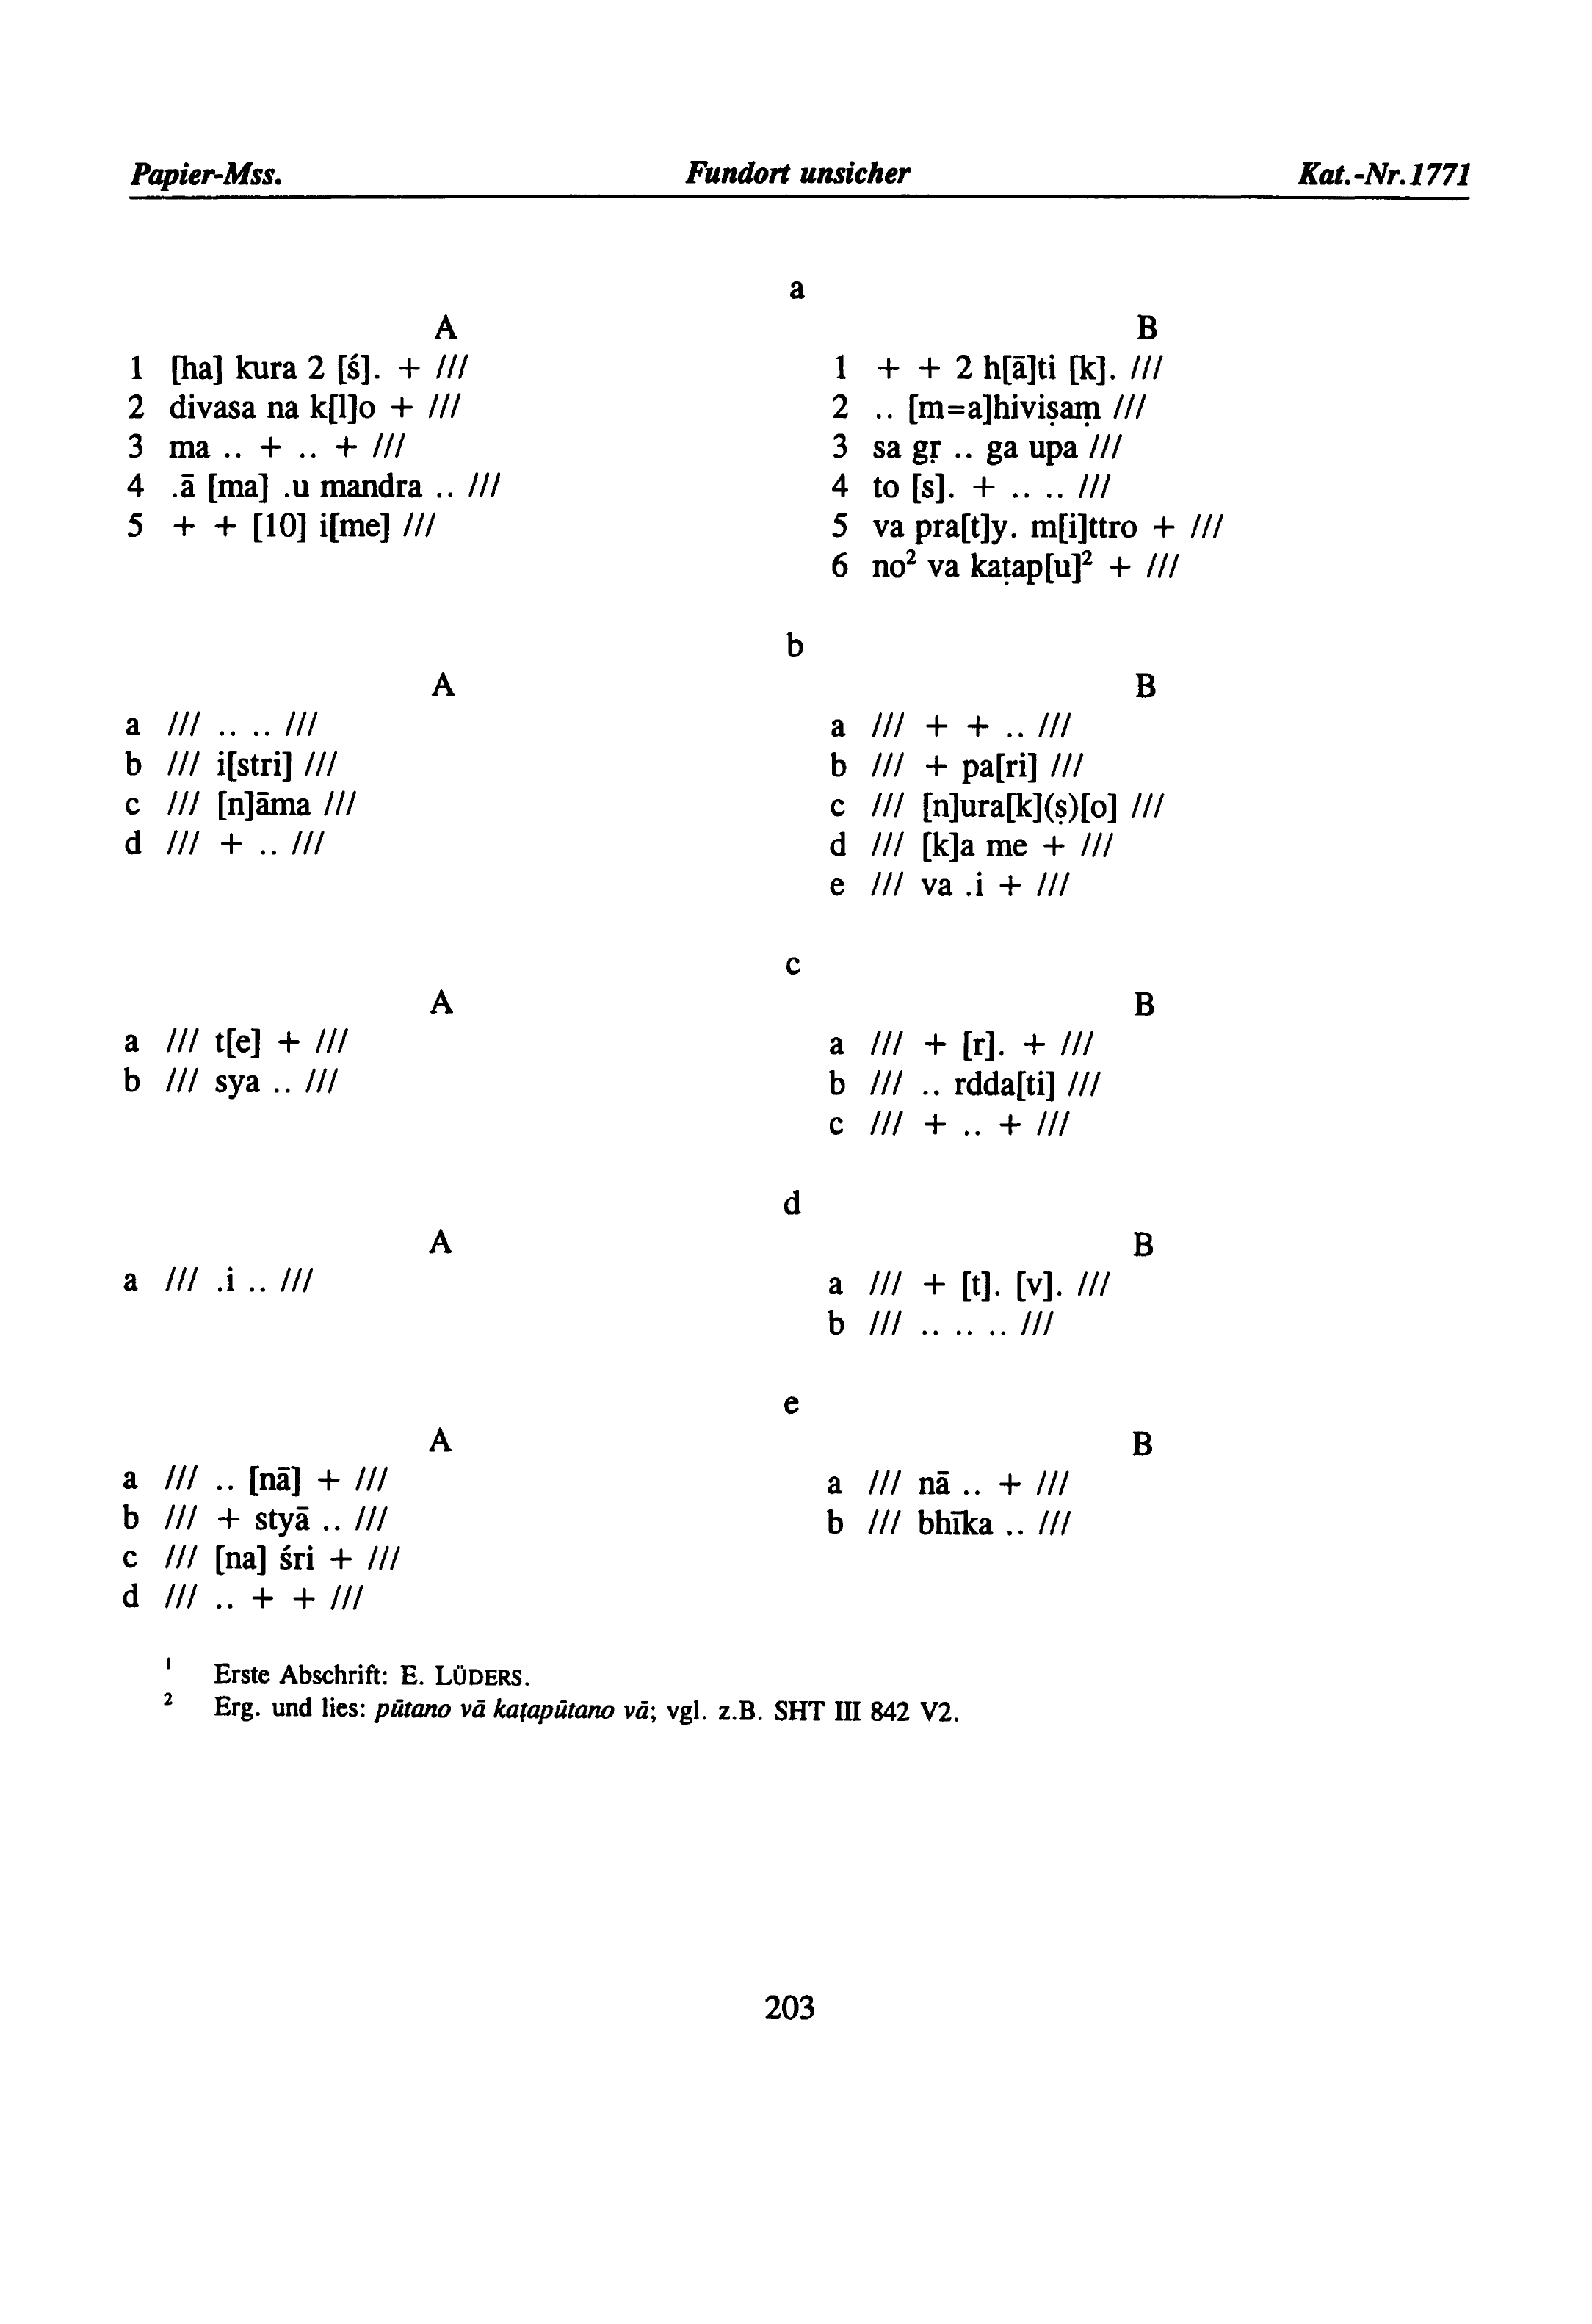 Papier-Mss. Fundort unsicher Kat.-Nr.1771
a
A
1 [ha] kura 2 [ś]. + ///
2 divasa na k[l]o + ///
3 ma .. + .. + ///
4 .ā [ma] .u mandra .. ///
5 + + [10] i[me] ///
B
1 + + 2 h[ā]ti [k]. ///
2 .. [m=a]hiviṣaṃ ///
3 sa gṛ .. ga upa ///
4 to [s]. + .. .. ///
5 va pra[t]y. m[i]ttro + ///
6 no² va kaṭap[u]² + ///
b
A
a /// .. .. ///
b /// i[stri] ///
c /// [n]āma ///
d /// + .. ///
B
a /// + + .. ///
b /// + pa[ri] ///
c /// [n]ura[k](ṣ)[o] ///
d /// [k]a me + ///
e /// va .i + ///
c
A
a /// t[e] + ///
b /// sya .. ///
B
a /// + [r]. + ///
b /// .. rdda[ti] ///
c /// + .. + ///
d
A
a /// .i .. ///
B
a /// + [t]. [v]. ///
b /// .. .. .. ///
e
A
a /// .. [nā] + ///
b /// + styā .. ///
c /// [na] śri + ///
d /// .. + + ///
B
a /// nā .. + ///
b /// bhīka .. ///
¹ Erste Abschrift: E. LÜDERS.
² Erg. und lies: pūtano vā kaṭapūtano vā; vgl. z.B. SHT III 842 V2.
203